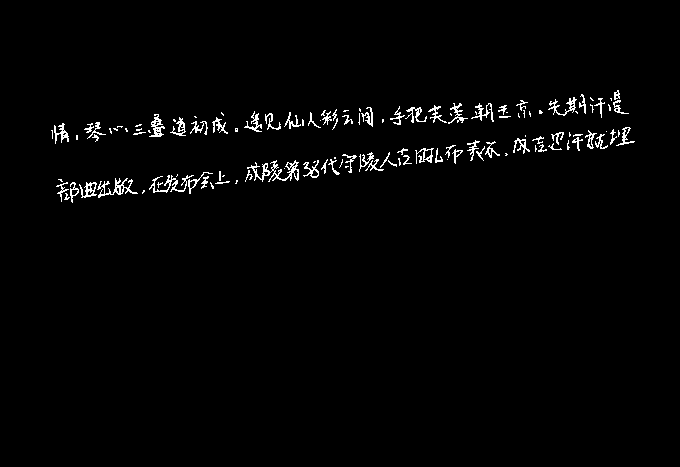 情,琴心三叠道初成。遥见仙人彩云间,手把芙蓉朝玉京。先期汗漫
部曲出版,在发布会上,成陵第38代守陵人古日扎布表示,成吉思汗就埋